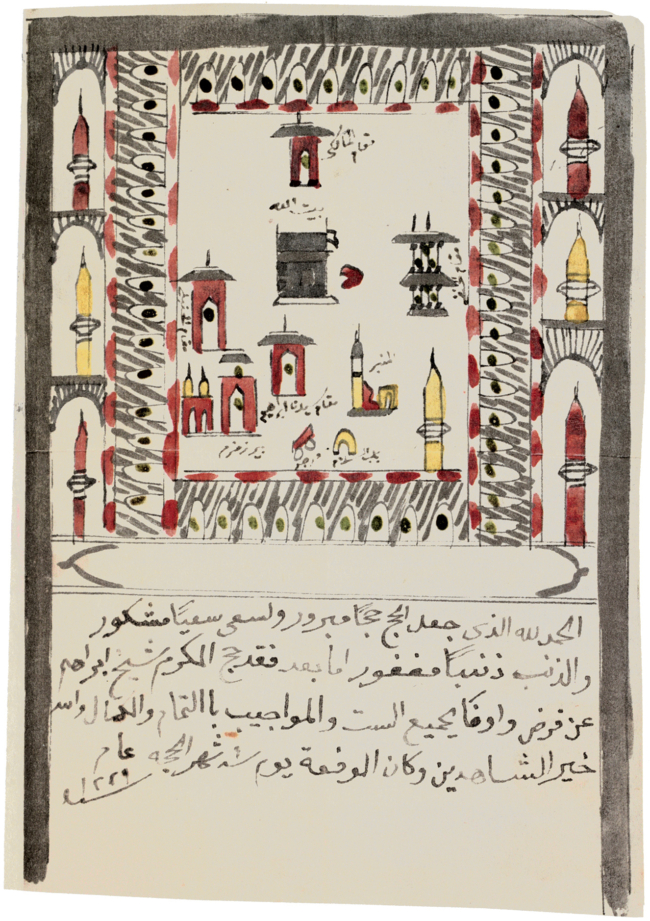 مقام المالكي
بيت الله
مقام
المنبر
مقام سيدنا ابراهيم
بير زمزم
باب السلام
الحمد لله الذى جعل الحج حجًا مبرور والسعى سعيًا مشكور
والذنب ذنبًا مغفور اما بعد فقد حج المكرم شيخ ابراهم
عن فرض واوفا بجميع الست والمواجيب باالتمام والكمال والله
خير الشاهدين وكان الوقفة يوم شهر الحجه عام
١٢٢٩